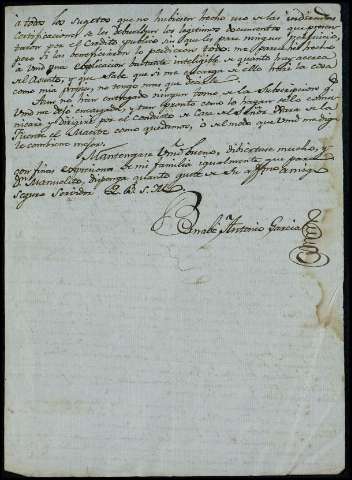 a todos los Sugetos que no hubiesen hecho uso de las indicadas
Certificaciones se les debuelban los legitimos documentos que presen-
taron por el Credito publico sin seguirles para ninguno perjuicio,
pero si las beneficiaron lo perdieron todo: me parece he hecho
a Vmd una explicacion bastante inteligible de quanto hay acerca
del asunto, y que sabe que si me encarga de ello haré la cosa
como mia propia, no tengo mas que decirle.
Aun no han entregado ningun tomo de la Subscripcion q.
Vmd me dejó encargada, y tan pronto como lo hagan se lo comu-
nicaré y dirigiré por el conducto de casa del Señor
Fuente el Maestre como quedamos, ó del modo que Vmd me diga
le combiene mejor.
Mantengase Vmd bueno, dibiertase mucho, y
con finas expresiones de mi familia igualmente que para
Dn. Manuelito, disponga quanto guste de su affmo amigo
Seguro Servidor Q. B. S. M.
Bernabé Antonio Garcia